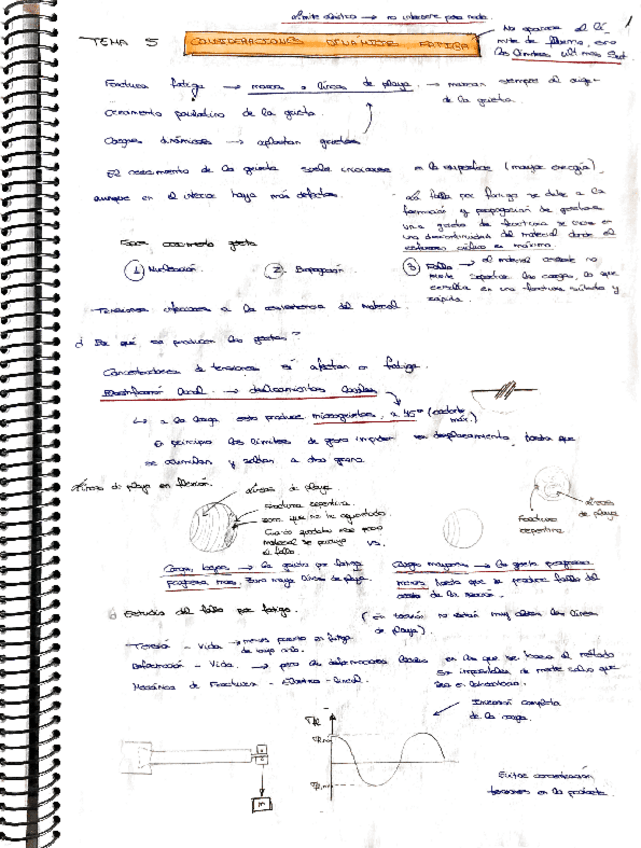 límite elástico → no interviene para nada.
1
No aparece el lí-
mite de fluencia, sino
los límites últimos Sut
TEMA 5 CONSIDERACIONES DINÁMICAS FATIGA
Fractura fatiga → marcas o líneas de playa. → marcan siempre el
de la grieta.
crecimiento paulatino de la grieta.
Cargas dinámicas → aplastan grietas
El crecimiento de la grieta suele iniciarse en la superficie (mayor energía),
aunque en el interior haya más defectos.
La falla por fatiga se debe a la
formación y propagación de grietas
una grieta de fractura se crea en
una discontinuidad del material donde el
esfuerzo cíclico es máximo.
Fases crecimiento grieta
1 Nucleación. 2 Propagación. 3 Falla → el material restante no
puede soportar las cargas, lo que
resulta en una fractura súbita y
rápida.
Tensiones inferiores a la resistencia del material.
¿Por qué se producen las grietas?
Concentradores de tensiones sí afectan en fatiga.
Plastificación local. → deslizamientos locales
↳ a la larga esto produce microgrietas, a 45º (cortante
máx.)
En principio los límites de grano impiden su desplazamiento, hasta que
se acumulan y saltan a otro grano.
Líneas de playa en flexión.
Líneas de playa.
Fractura repentina.
zona que no ha aguantado.
Cuando quedaba muy poco
material se produjo
el fallo.
vs.
Fractura
repentina.
Líneas
de playa
Cargas bajas → la grieta por fatiga
progresa más. Zona mayor líneas de playa.
Carga mayores → la grieta progresa
menos hasta que se produce fallo del
resto de la sección.
Estudio del fallo por fatiga.
(En torsión no están muy claras las líneas
de playa).
Tensión - Vida → menos preciso en fatiga
de bajo ciclo.
Deformación - Vida. → pero las deformaciones locales en las que se basa el método
son imposibles de medir salvo que
sea en laboratorio.
Mecánica de Fractura - Elástica - lineal.
Inversión completa
de la carga.
m
Evitar concentración
tensiones en la probeta.